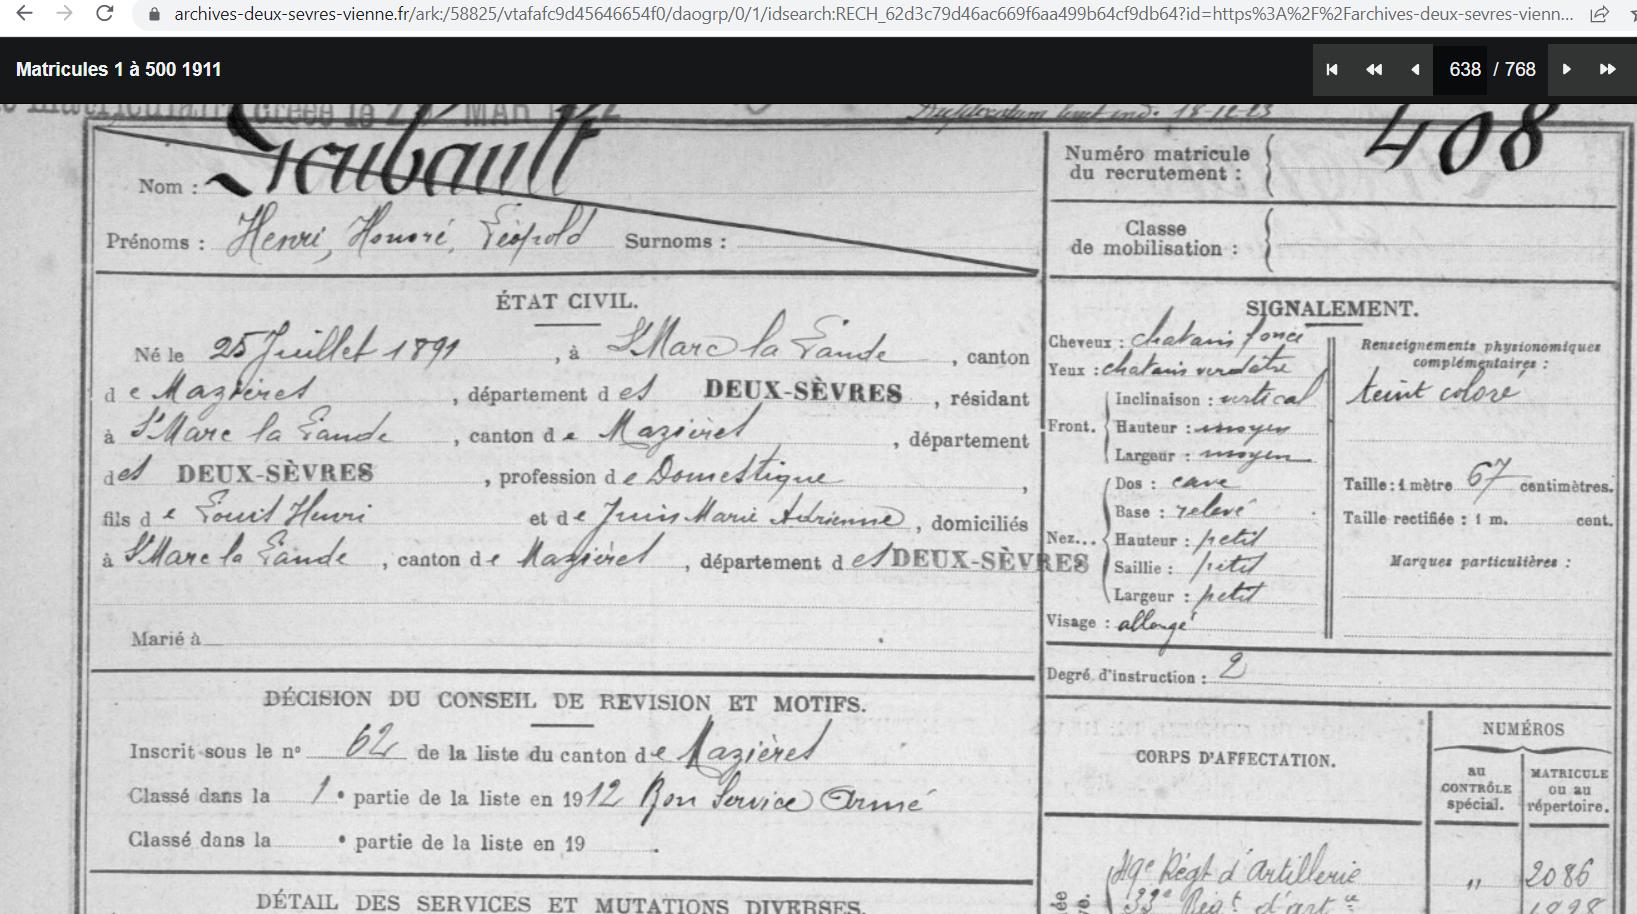 archives-deux-sevres-vienne.fr/ark:/58825/vtafafc9d45646654f0/daogrp/0/1/idsearch:RECH_62d3c79d46ac669f6aa499b64cf9db64?id=https%3A%2F%2Farchives-deux-sevres-vienn...
Matricules 1 à 500 1911
638 / 768
Nom :
Prénoms : Henri, Honoré, Léopold Surnoms :
Numéro matricule du recrutement : 408
Classe de mobilisation :
ÉTAT CIVIL.
Né le 25 Juillet 1891, à St Marc la Lande, canton
de Mazières, département des DEUX-SÈVRES, résidant
à St Marc la Lande, canton de Mazières, département
des DEUX-SÈVRES, profession de Domestique,
fils de Louis Henri et de Juin Marie Adrienne, domiciliés
à St Marc la Lande, canton de Mazières, département des DEUX-SÈVRES
Marié à
DÉCISION DU CONSEIL DE REVISION ET MOTIFS.
Inscrit sous le nº 62 de la liste du canton de Mazières
Classé dans la 1e partie de la liste en 1912 Bon Service Armé
Classé dans la e partie de la liste en 19 .
DÉTAIL DES SERVICES ET MUTATIONS DIVERSES.
SIGNALEMENT.
Cheveux : chatain foncé
Yeux : chatain verdatre
Front.
Inclinaison : vertical
Hauteur : moyen
Largeur : moyen
Nez...
Dos : cave
Base : relevé
Hauteur : petit
Saillie : petit
Largeur : petit
Visage : allongé
Renseignements physionomiques
complémentaires :
teint coloré
Taille : 1 mètre 67 centimètres.
Taille rectifiée : 1 m. cent.
Marques particulières :
Degré d'instruction : 2
CORPS D'AFFECTATION.
NUMÉROS
au
CONTRÔLE
spécial.
MATRICULE
ou au
répertoire.
49e Régt d'Artillerie " 2086
33e Régt d'artie